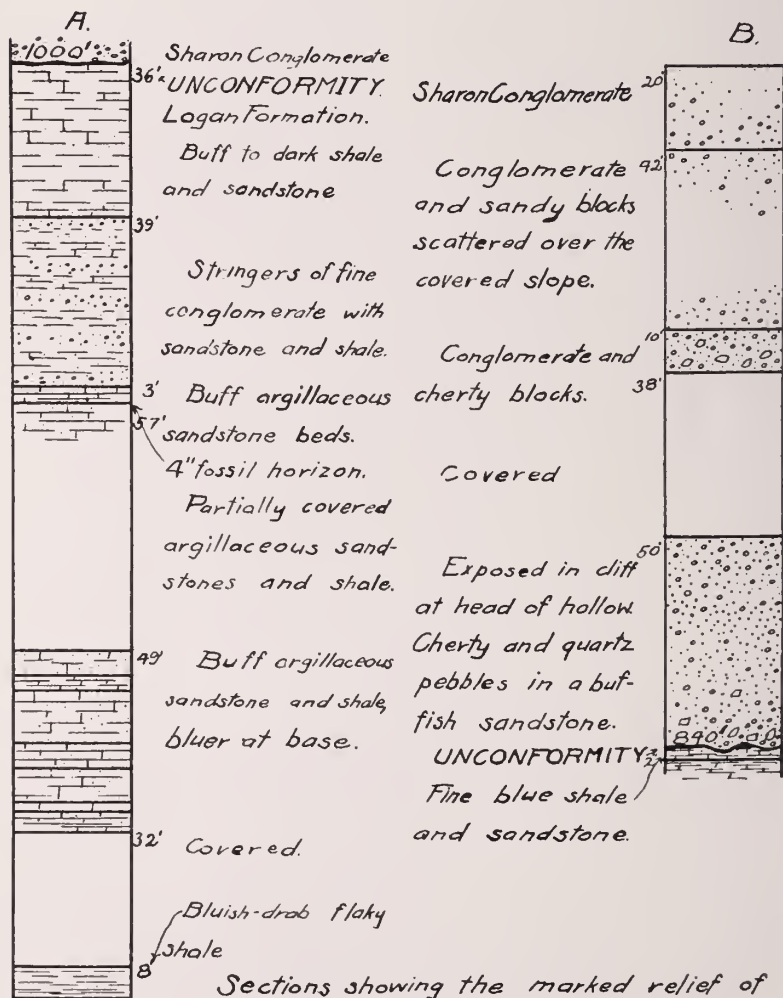 A.
1000'
Sharon Conglomerate
36'
UNCONFORMITY
Logan Formation.
Buff to dark shale
and sandstone
39'
Stringers of fine
conglomerate with
sandstone and shale.
3'
Buff argillaceous
sandstone beds.
57'
4" fossil horizon.
Partially covered
argillaceous sand-
stones and shale.
49'
Buff argillaceous
sandstone and shale,
bluer at base.
32'
Covered.
Bluish-drab flaky
shale
8'
B.
Sharon Conglomerate
20'
42'
Conglomerate
and sandy blocks
scattered over the
covered slope.
10'
Conglomerate and
cherty blocks.
38'
Covered
50'
Exposed in cliff
at head of hollow.
Cherty and quartz
pebbles in a buf-
fish sandstone.
840'
UNCONFORMITY
2'
Fine blue shale
and sandstone.
Sections showing the marked relief of